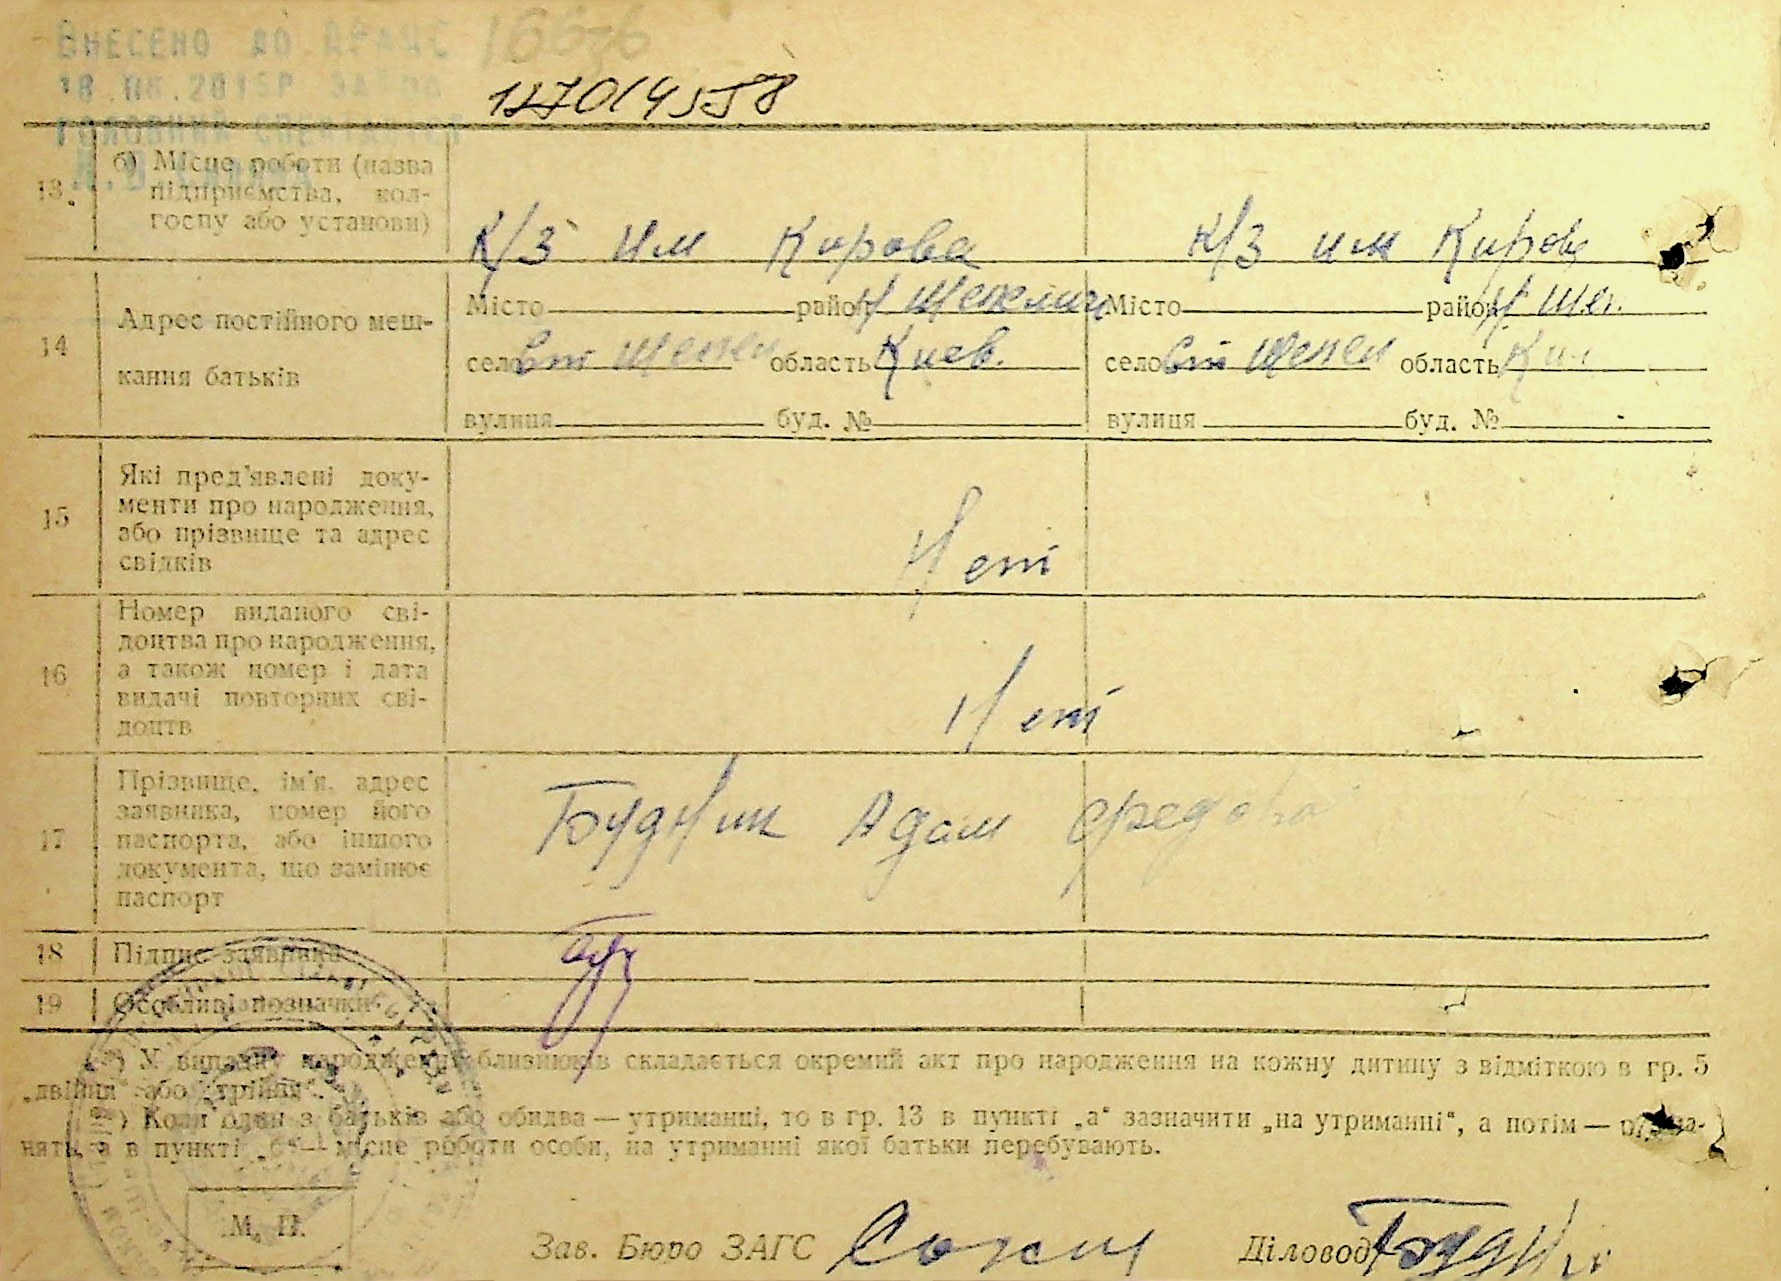 ВНЕСЕНО ДО ДРАЦС 16676
18.08.2015Р
127014558
13. б) Місце роботи (назва
підприємства, кол-
госпу або установи)
К/З им Кирова К/З им Кирова
14 Адрес постійного меш-
кання батьків
Місто район Н Шепелич Місто район Н. Шеп.
село Ст Шепел область Киев. село Ст Шепел область Ки
вулиця буд. № вулиця буд. №
15 Які пред'явлені доку-
менти про народження,
або прізвище та адрес
свідків
Нет
16 Номер виданого сві-
доцтва про народження,
а також номер і дата
видачі повторних сві-
доцтв
Нет
17 Прізвище, ім'я, адрес
заявника, номер його
паспорта, або іншого
документа, що замінює
паспорт
Будник Адам
18 Підпис заявника
19 Особливі позначки
*) У випадку народження близнюків складається окремий акт про народження на кожну дитину з відміткою в гр. 5
„двійня" або „трійня".
) Коли один з батьків або обидва — утриманці, то в гр. 13 в пункті „а" зазначити „на утриманні", а потім —
няття, а в пункті „б" — місце роботи особи, на утриманні якої батьки перебувають.
М. П.
Зав. Бюро ЗАГС Діловод